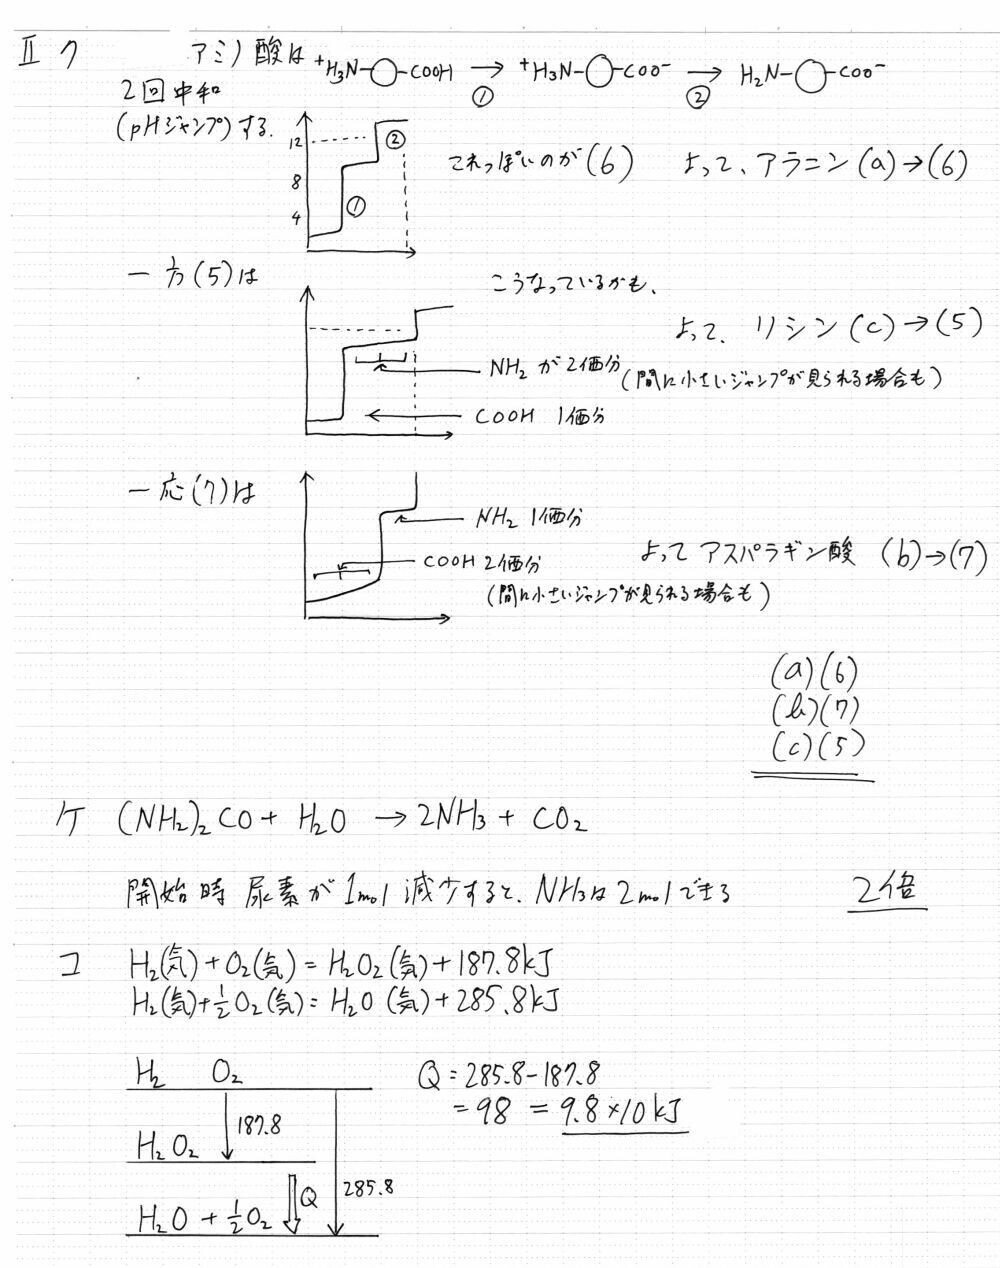 II ク アミノ酸は ⁺H₃N-○-COOH → ⁺H₃N-○-COO⁻ → H₂N-○-COO⁻
① ②
2回中和
(pHジャンプ)する.
12
8
4
②
①
これっぽいのが(6) よって、アラニン(a)→(6)
一方(5)は こうなっているかも、
よって、リシン(c)→(5)
NH₂ が2価分(間に小さいジャンプが見られる場合も)
COOH 1価分
一応(7)は
NH₂ 1価分
COOH 2価分
(間に小さいジャンプが見られる場合も)
よって アスパラギン酸 (b)→(7)
(a)(6)
(b)(7)
(c)(5)
ケ (NH₂)₂CO + H₂O → 2NH₃ + CO₂
開始時 尿素が1mol 減少すると、NH₃は2molできる 2倍
コ H₂(気)+O₂(気)=H₂O₂(気)+187.8kJ
H₂(気)+½O₂(気)=H₂O(気)+285.8kJ
H₂ O₂
187.8
H₂O₂
Q
285.8
H₂O + ½O₂
Q = 285.8-187.8
= 98 = 9.8×10kJ